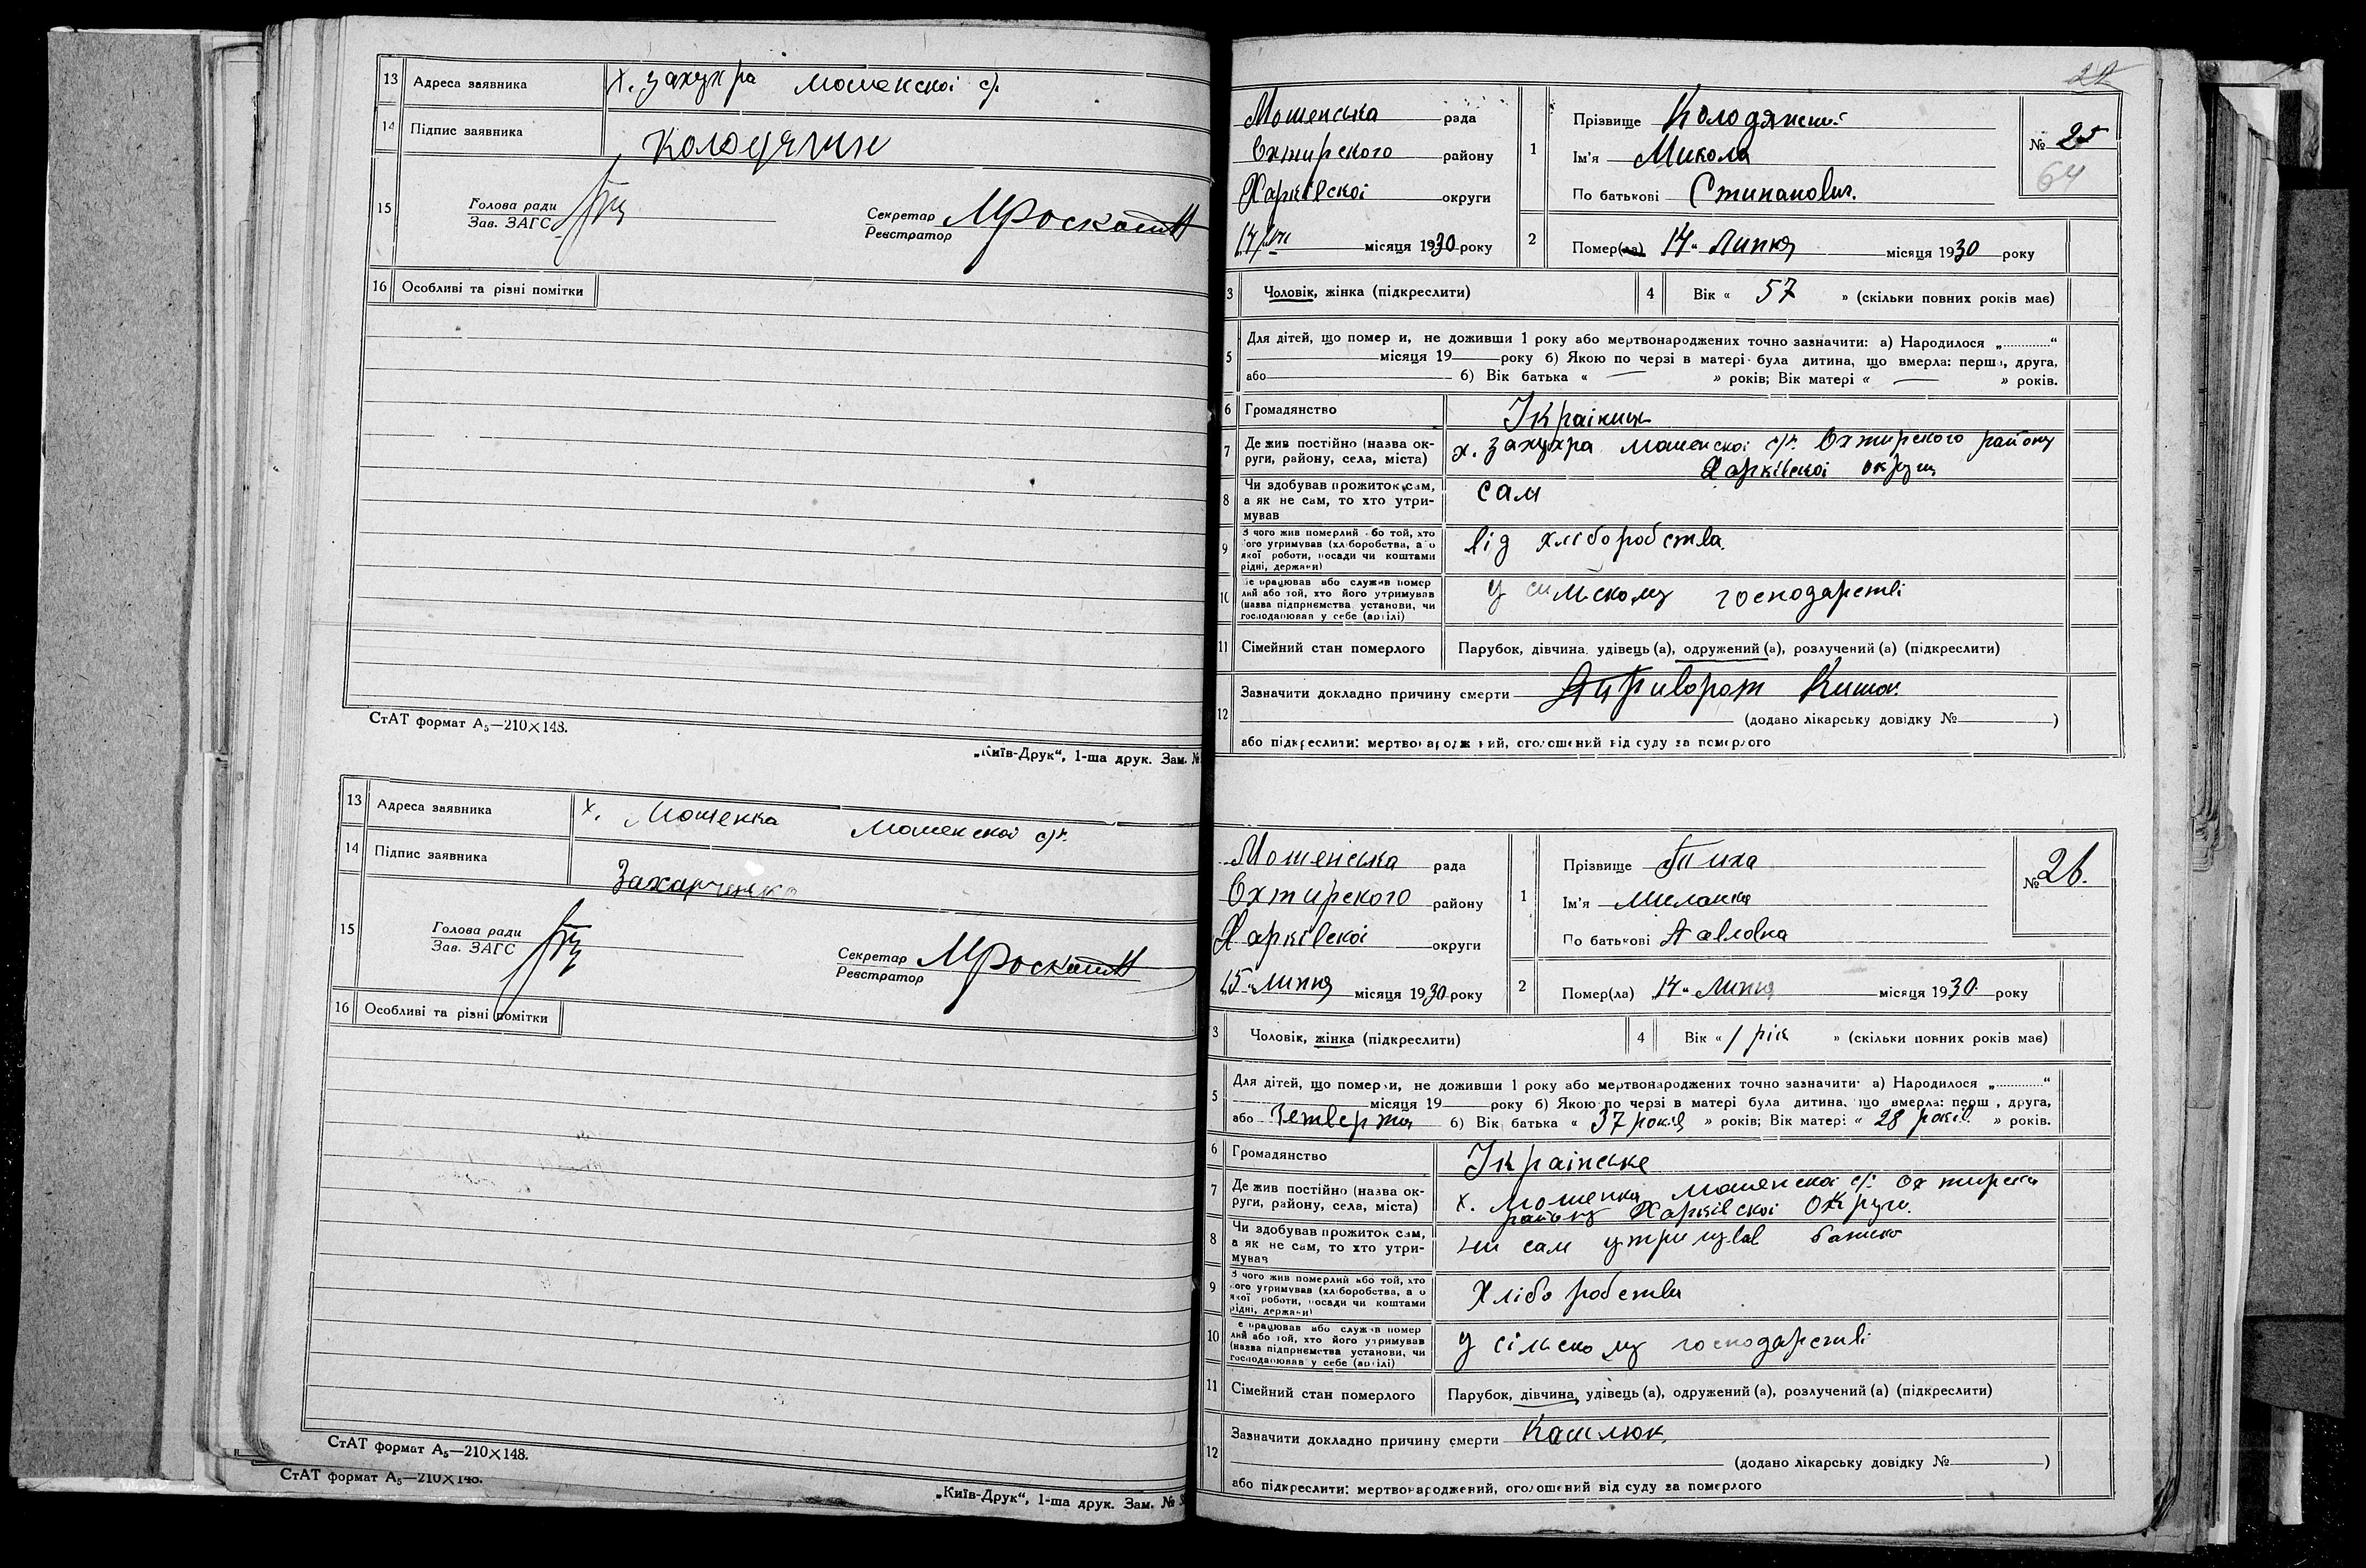 13 Адреса заявника х. Захухра Мошенскої с/р.
14 Підпис заявника
15 Голова ради
Зав. ЗАГС
Секретар
Реєстратор
16 Особливі та різні помітки
СтАТ формат А₅—210×148.
„Київ-Друк“, 1-ша друк. Зам. №
13 Адреса заявника х. Мошенка Мошенскої с/р.
14 Підпис заявника Захарченко
15 Голова ради
Зав. ЗАГС
Секретар
Реєстратор
16 Особливі та різні помітки
СтАТ формат А₅—210×148.
СтАТ формат А₅—210×148.
„Київ-Друк“, 1-ша друк. Зам. №
Мошенська рада
Охтирского району
Харківскої округи
місяця 1930 року
1 Прізвище
Ім'я Микола
По батькові Стипанович.
№ 25
64
2 Помер(ла) 14 „ Липня місяця 1930 року
3 Чоловік, жінка (підкреслити)
4 Вік « 57 » (скільки повних років має)
5 Для дітей, що помер и, не доживши 1 року або мертвонароджених точно зазначити: а) Народилося „............“
місяця 19 року б) Якою по черзі в матері була дитина, що вмерла: перша, друга,
або б) Вік батька « — » років; Вік матері « — » років.
6 Громадянство
7 Де жив постійно (назва ок-
руги, району, села, міста) х. Захухра Мошенскої с/р. Охтирского району
Харківскої округи
8 Чи здобував прожиток сам,
а як не сам, то хто утри-
мував сам
9 З чого жив померлий або той, хто
його утримував (хліборобства, а о
якої роботи, посади чи коштами
рідні, держави) від хліборобства.
10 Де працював або служив помер
лий або той, хто його утримував
(назва підприємства установи, чи
господарював у себе (артілі) у сильскому господарстві
11 Сімейний стан померлого Парубок, дівчина, удівець (а), одружений (а), розлучений (а) (підкреслити)
12 Зазначити докладно причину смерти Кишок
(додано лікарську довідку № )
або підкреслити: мертвонароджений, оголошений від суду за померлого
Мошенська рада
Охтирского району
Харківскої округи
15 „ Липня місяця 1930 року
1 Прізвище Тиха
Ім'я Миланка
По батькові Павловна
№ 26.
2 Помер(ла) 14 „ Липня місяця 1930 року
3 Чоловік, жінка (підкреслити)
4 Вік « 1 рік » (скільки повних років має)
5 Для дітей, що померли, не доживши 1 року або мертвонароджених точно зазначити: а) Народилося „............“
місяця 19 року б) Якою по черзі в матері була дитина, що вмерла: перш , друга,
або Четверта б) Вік батька « 37 років » років; Вік матері « 28 років » років.
6 Громадянство Українське
7 Де жив постійно (назва ок-
руги, району, села, міста) х. Мошенка Мошенскої с/р Охтирск
району Харківскої Округи.
8 Чи здобував прожиток сам,
а як не сам, то хто утри-
мував ни сам утримував батько
9 З чого жив померлий або той, хто
його утримував (хліборобства, а о
якої роботи, посади чи коштами
рідні, держави) Хліборобства
10 Де працював або служив помер
лий або той, хто його утримував
(назва підприємства установи, чи
господарював у себе (артілі) у сільскому господарстві
11 Сімейний стан померлого Парубок, дівчина, удівець (а), одружений (а), розлучений (а) (підкреслити)
12 Зазначити докладно причину смерти Кашлюк.
(додано лікарську довідку № )
або підкреслити: мертвонароджений, оголошений від суду за померлого